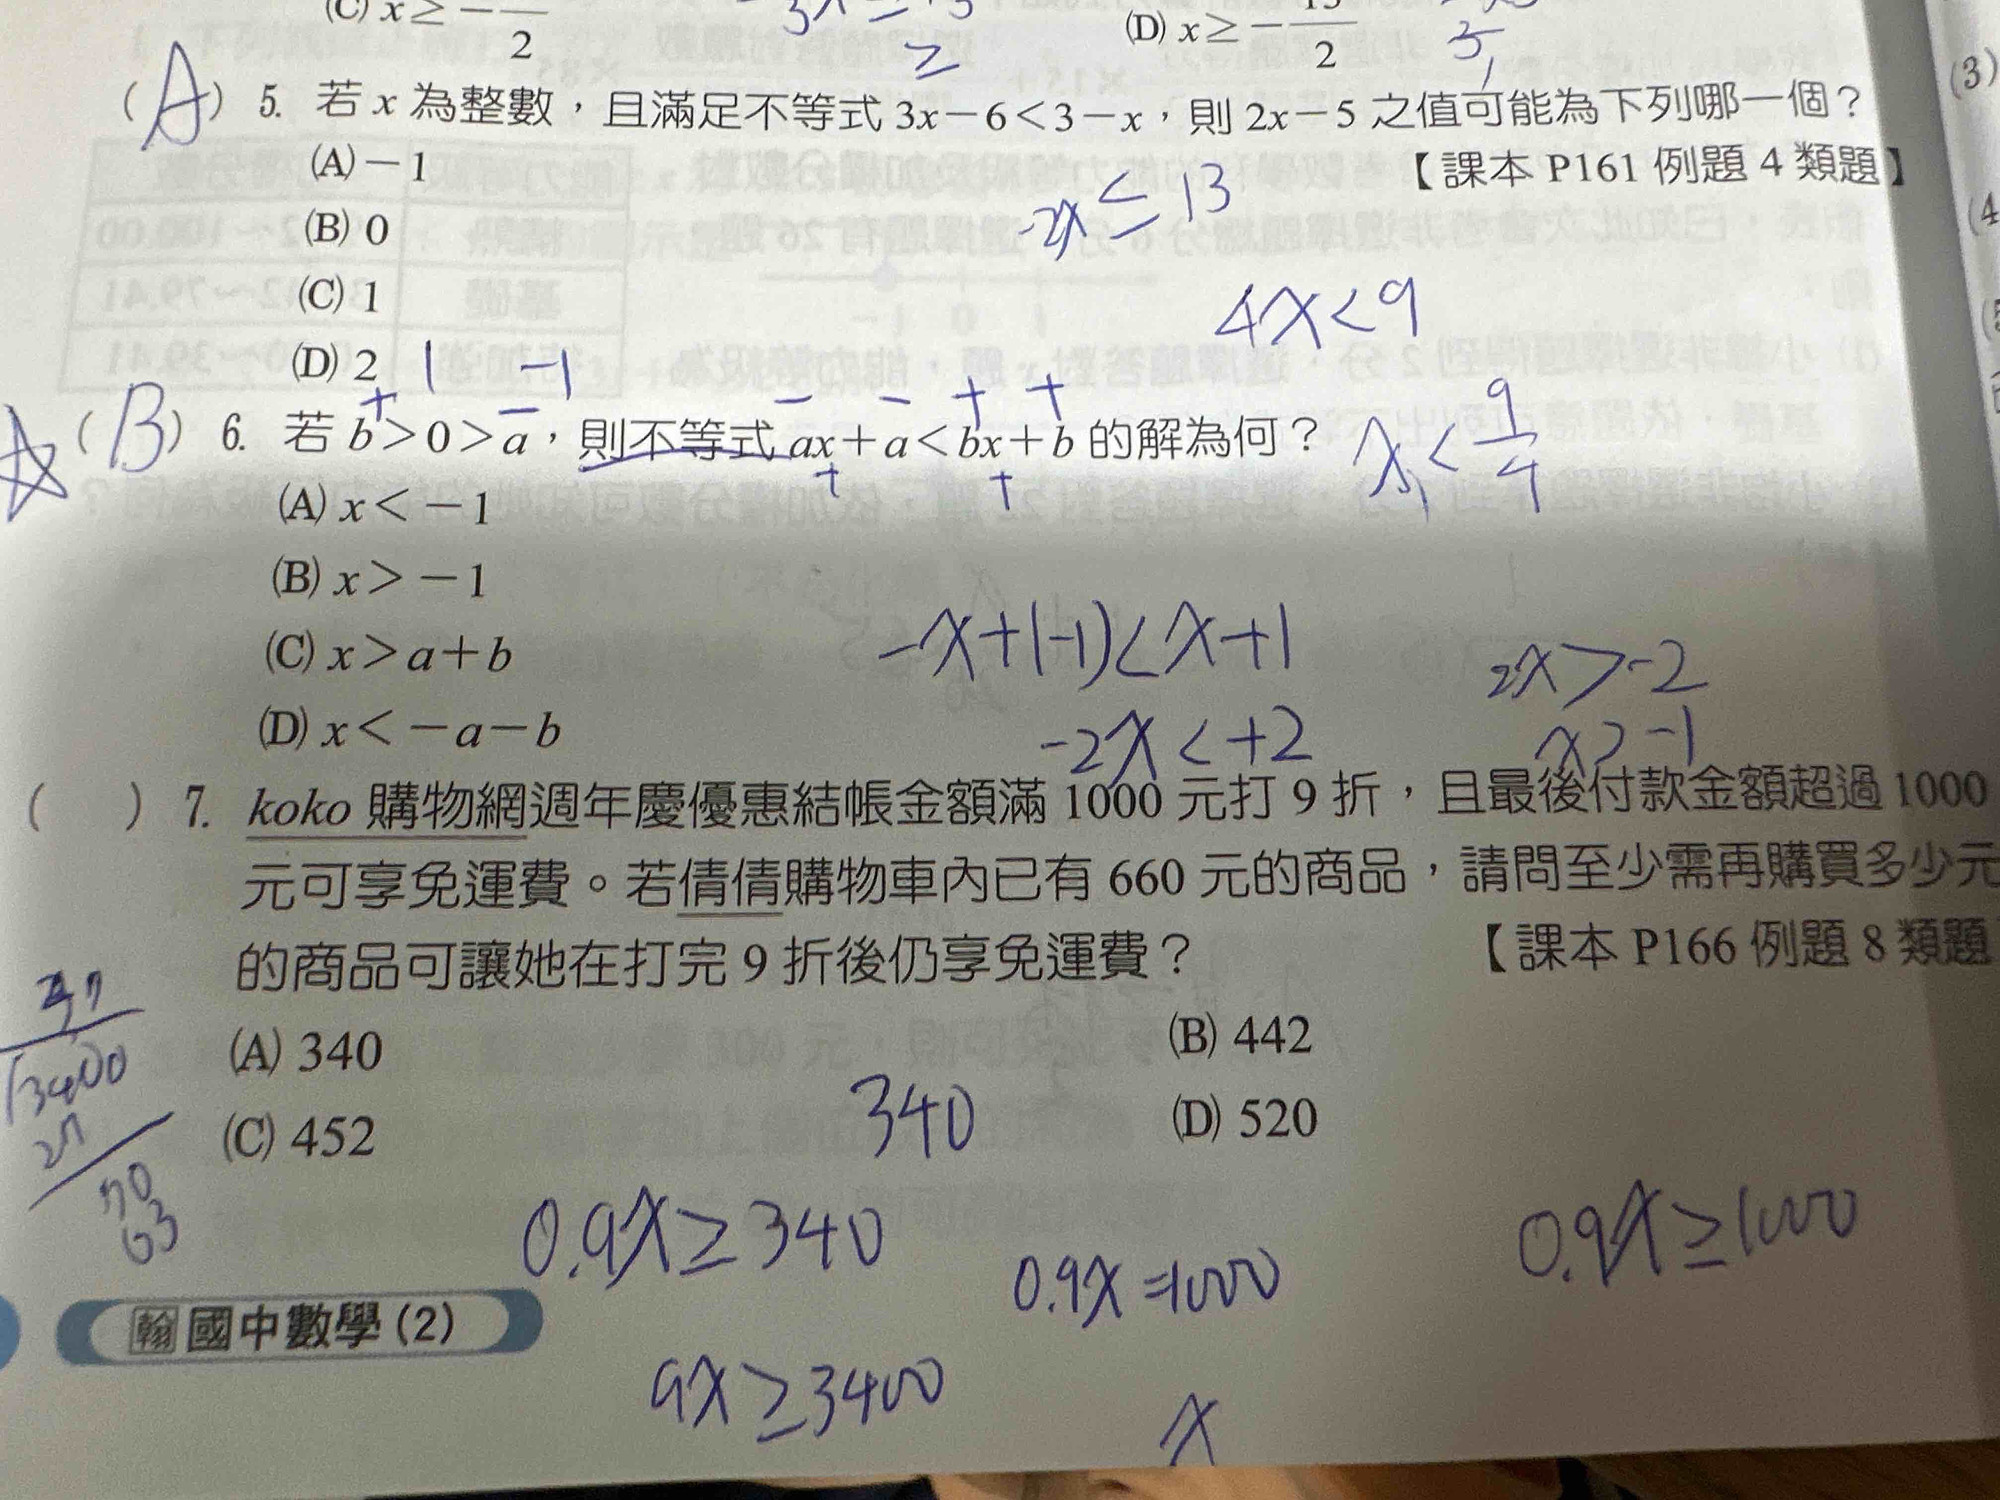 (C) x≥－ 2
(D) x≥－ 2
(A) 5. 若 x 為整數，且滿足不等式 3x－6＜3－x，則 2x－5 之值可能為下列哪一個？
(A)－1
【課本 P161 例題 4 類題】
-2x≤13
(B) 0
(C) 1
4x<9
(D) 2
1 -1
+ - - - + +
(B) 6. 若 b＞0＞a，則不等式 ax＋a＜bx＋b 的解為何？
+ +
x<9/4
(A) x＜－1
(B) x＞－1
-x+(-1)<x+1
2x>-2
(C) x＞a＋b
-2x<+2
x>-1
(D) x＜－a－b
( ) 7. koko 購物網週年慶優惠結帳金額滿 1000 元打 9 折，且最後付款金額超過 1000
元可享免運費。若倩倩購物車內已有 660 元的商品，請問至少需再購買多少元
的商品可讓她在打完 9 折後仍享免運費？
【課本 P166 例題 8 類題
37
3400
27
70
63
(A) 340
(B) 442
(C) 452
(D) 520
340
0.9x≥340
0.9x=1000
0.9x≥1000
9x≥3400
x
翰 國中數學(2)
(3)
(4